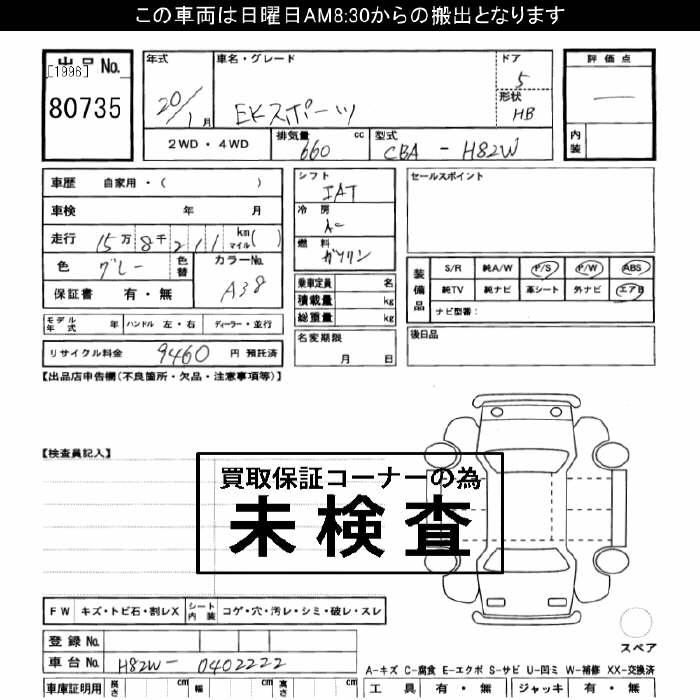 この車両は日曜日AM8:30からの搬出となります
出品No.
[1996]
80735
年式
20/1月
車名・グレード
EKスポーツ
ドア
5
形状
HB
評価点
内装
2WD・4WD
排気量
660 cc
型式
CBA - H82W
車歴 自家用・( )
車検 年 月
走行 15万8千211 km マイル( )
色 グレー 色替 カラーNo.
A38
保証書 有・無
モデル年式 年 ハンドル 左・右 ディーラー・並行
リサイクル料金 9460 円 預託済
シフト
IAT
冷房
燃料
ガソリン
乗車定員 名
積載量 kg
総重量 kg
名変期限
月 日
セールスポイント
装備品
S/R 純A/W P/S P/W ABS
純TV 純ナビ 革シート 外ナビ エアB
ナビ型番:
後日品
【出品店申告欄(不良箇所・欠品・注意事項等)】
【検査員記入】
買取保証コーナーの為
未検査
FW キズ・トビ石・割レX シート内装 コゲ・穴・汚レ・シミ・破レ・スレ
登録No.
車台No. H82W-0402222
車庫証明用 長さ cm 幅 cm 高さ cm
スペア
A-キズ C-腐食 E-エクボ S-サビ U-凹ミ W-補修 XX-交換済
工具 有・無 ジャッキ 有・無